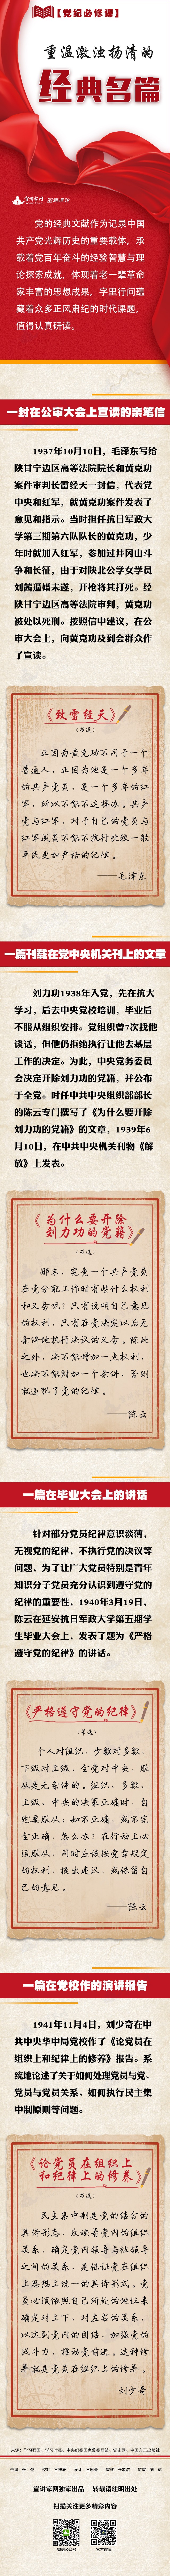 【党纪必修课】
重温激浊扬清的
经典名篇
宣讲家网 图解理论
党的经典文献作为记录中国
共产党光辉历史的重要载体，承
载着党百年奋斗的经验智慧与理
论探索成就，体现着老一辈革命
家丰富的思想成果，字里行间蕴
藏着众多正风肃纪的时代课题，
值得认真研读。
一封在公审大会上宣读的亲笔信
1937年10月10日，毛泽东写给
陕甘宁边区高等法院院长和黄克功
案件审判长雷经天一封信，代表党
中央和红军，就黄克功案件发表了
意见和指示。当时担任抗日军政大
学第三期第六队队长的黄克功，少
年时就加入红军，参加过井冈山斗
争和长征，由于对陕北公学女学员
刘茜逼婚未遂，开枪将其打死。经
陕甘宁边区高等法院审判，黄克功
被处以死刑。按照信中建议，在公
审大会上，向黄克功及到会群众作
了宣读。
《致雷经天》
（节选）
正因为黄克功不同于一个
普通人，正因为他是一个多年
的共产党员，是一个多年的红
军，所以不能不这样办。共产
党与红军，对于自己的党员与
红军成员不能不执行比较一般
平民更加严格的纪律。
——毛泽东
一篇刊载在党中央机关刊上的文章
刘力功1938年入党，先在抗大
学习，后去中央党校培训，毕业后
不服从组织安排。党组织曾7次找他
谈话，但他仍拒绝执行让他去基层
工作的决定。为此，中央党务委员
会决定开除刘力功的党籍，并公布
于全党。时任中共中央组织部部长
的陈云专门撰写了《为什么要开除
刘力功的党籍》的文章，1939年6
月10日，在中共中央机关刊物《解
放》上发表。
《为什么要开除
刘力功的党籍》
（节选）
那末，究竟一个共产党员
在党分配工作时有些什么权利
和义务呢？只有说明自己意见
的权利，只有在党决定以后无
条件地执行决议的义务。除此
之外，决不能增加一点权利，
也决不能附加一个条件，否则
就违犯了党的纪律。
——陈云
一篇在毕业大会上的讲话
针对部分党员纪律意识淡薄，
无视党的纪律，不执行党的决议等
问题，为了让广大党员特别是青年
知识分子党员充分认识到遵守党的
纪律的重要性，1940年3月19日，
陈云在延安抗日军政大学第五期学
生毕业大会上，发表了题为《严格
遵守党的纪律》的讲话。
《严格遵守党的纪律》
（节选）
个人对组织，少数对多数，
下级对上级，全党对中央，服
从是无条件的。组织、多数、
上级、中央的决策正确时，自
然要服从；如不正确，或不完
全正确，怎么办？在行动上必
须服从，同时应该按党章规定
的权利，提出建议，或保留自
己的意见。
——陈云
一篇在党校作的演讲报告
1941年11月4日，刘少奇在中
共中央华中局党校作了《论党员在
组织上和纪律上的修养》报告。系
统地论述了关于如何处理党员与党、
党员与党员关系、如何执行民主集
中制原则等问题。
《论党员在组织上
和纪律上的修养》
（节选）
民主集中制是党的结合的
具体形态，反映着党内的组织
关系，确定党内领导与被领导
之间的关系，是保证党在组织
上思想上统一的具体形式。党
员必须依照自己所处的地位来
确定对上下、对左右的关系，
以达到党内的团结，加强党的
战斗力，推动党前进。这种修
养就是党员在组织上的修养。
——刘少奇
宣讲家网独家出品 转载请注明出处
扫描关注更多精彩内容
微信公众号 官方微博